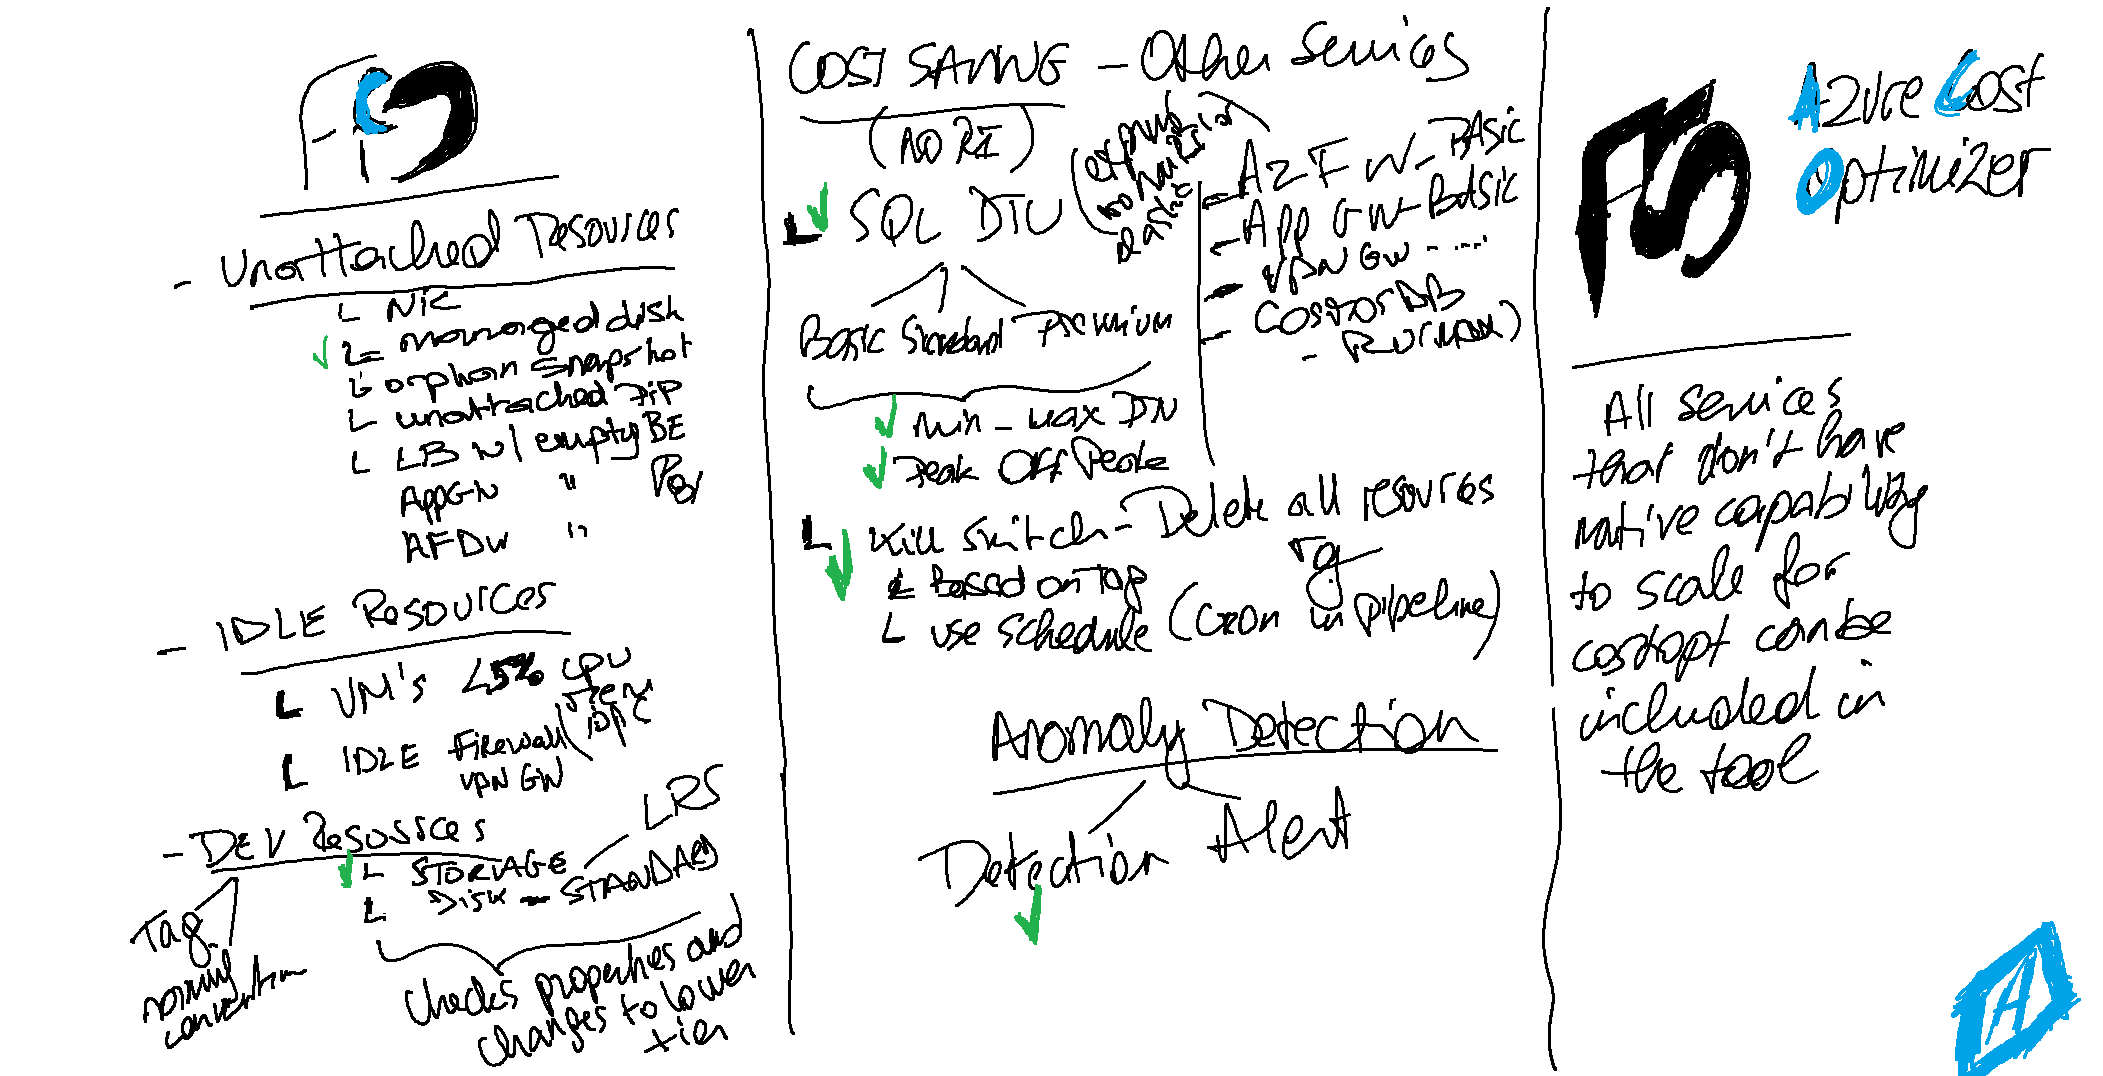 - Unattached Resources
L NIC
L managed disk
L orphan snapshot
L unattached PiP
L LB w/ empty BE
Pool
AppGW "
AFDW "
- IDLE Resources
L VM's <5% CPU
L IDLE Firewall
VPN GW
- DEV Resources
L STORAGE - LRS
L DISK - STANDARD
Tag
naming
convention
Checks properties and
changes to lower
tier
COST SAVING - Other Services
(NO RI)
L SQL DTU
Basic Standard Premium
min - max DTU
Peak Off Peak
- AZ FW - BASIC
- App GW - Basic
- VPN GW - ....
- Cosmos DB
- RU (MAX)
L Kill Switch - Delete all resources
rg
L Based on Tag
L use schedule (cron in pipeline)
Anomaly Detection
Detection Alert
FS
Azure Cost
Optimizer
All services
that don't have
native capability
to scale for
costopt can be
included in
the tool
A